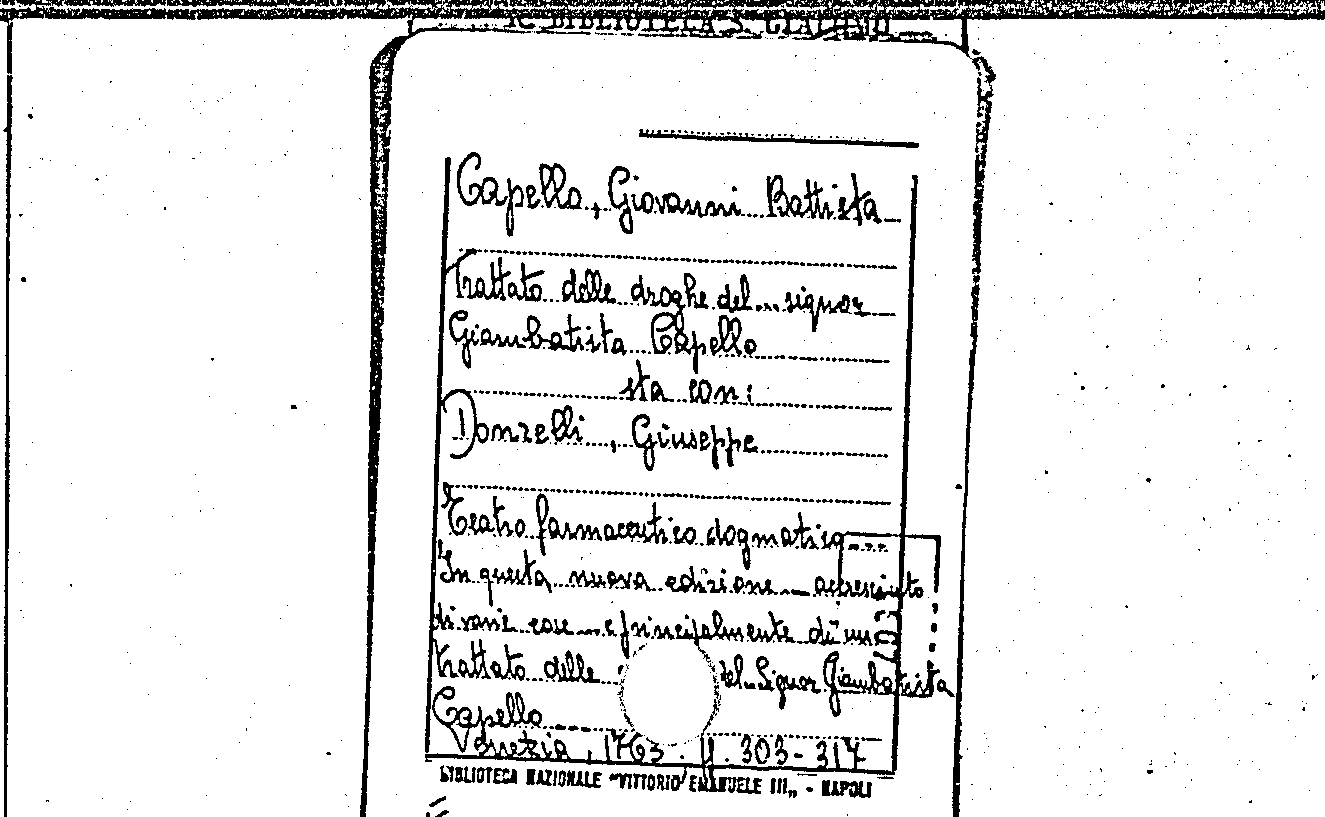 BIBLIOTECA S. GIACOMO
Capello, Giovanni Battista
Trattato delle droghe del... signor
Giambatista Capello
sta con:
Donzelli, Giuseppe
Teatro farmaceutico dogmatico...
In questa nuova edizione ... accresciuto
di varie cose ... e principalmente di un
trattato delle del Signor Giambatista
Capello
Venezia, 1763. pp. 303-317
BIBLIOTECA NAZIONALE "VITTORIO EMANUELE III„ - NAPOLI